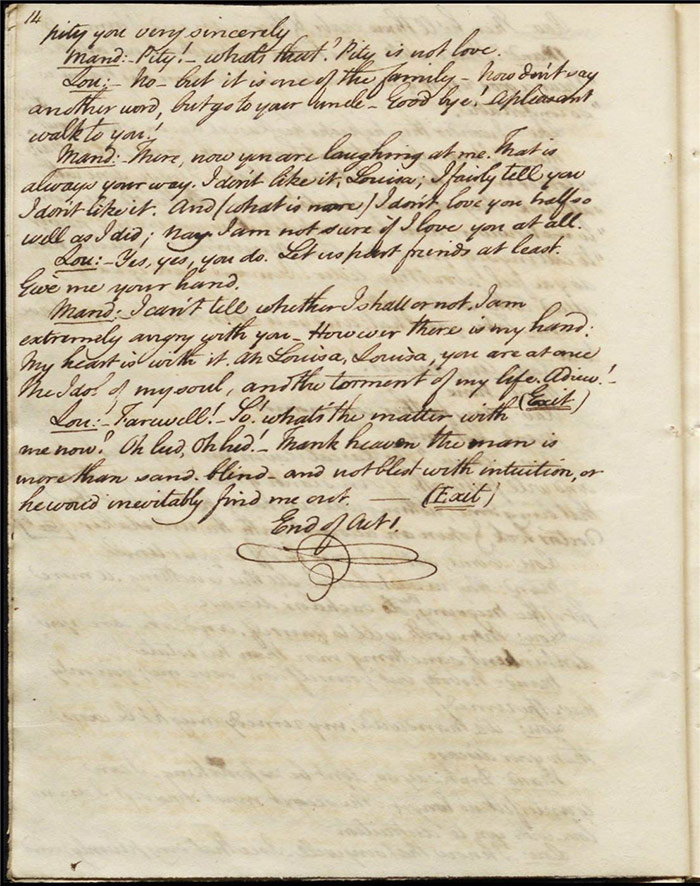 14
pity you very sincerely
Mand:- Pity! - what's that? Pity is not love.
Lou:- No - but it is one of the family - Now don't say
another word, but go to your uncle - Good bye! A pleasant
walk to you!
Mand:- There, now you are laughing at me. That is
always your way. I don't like it, Louisa; I fairly tell you
I don't like it. And (what is more) I don't love you half so
well as I did; nay I am not sure if I love you at all.
Lou:- Yes, yes, you do. Let us part friends at least.
Give me your hand.
Mand:- I can't tell whether I shall or not. I am
extremely angry with you - However there is my hand:
My heart is with it. Ah Louisa, Louisa, you are at once
the Idol of my soul, and the torment of my life. Adieu! -
(Exit)
Lou:- Farewell! - So! what's the matter with
me now? Oh lud, Oh lud! - Thank heaven the man is
more than sand-blind - and not blest with intuition, or
he would inevitably find me out. — (Exit)
End of Act 1